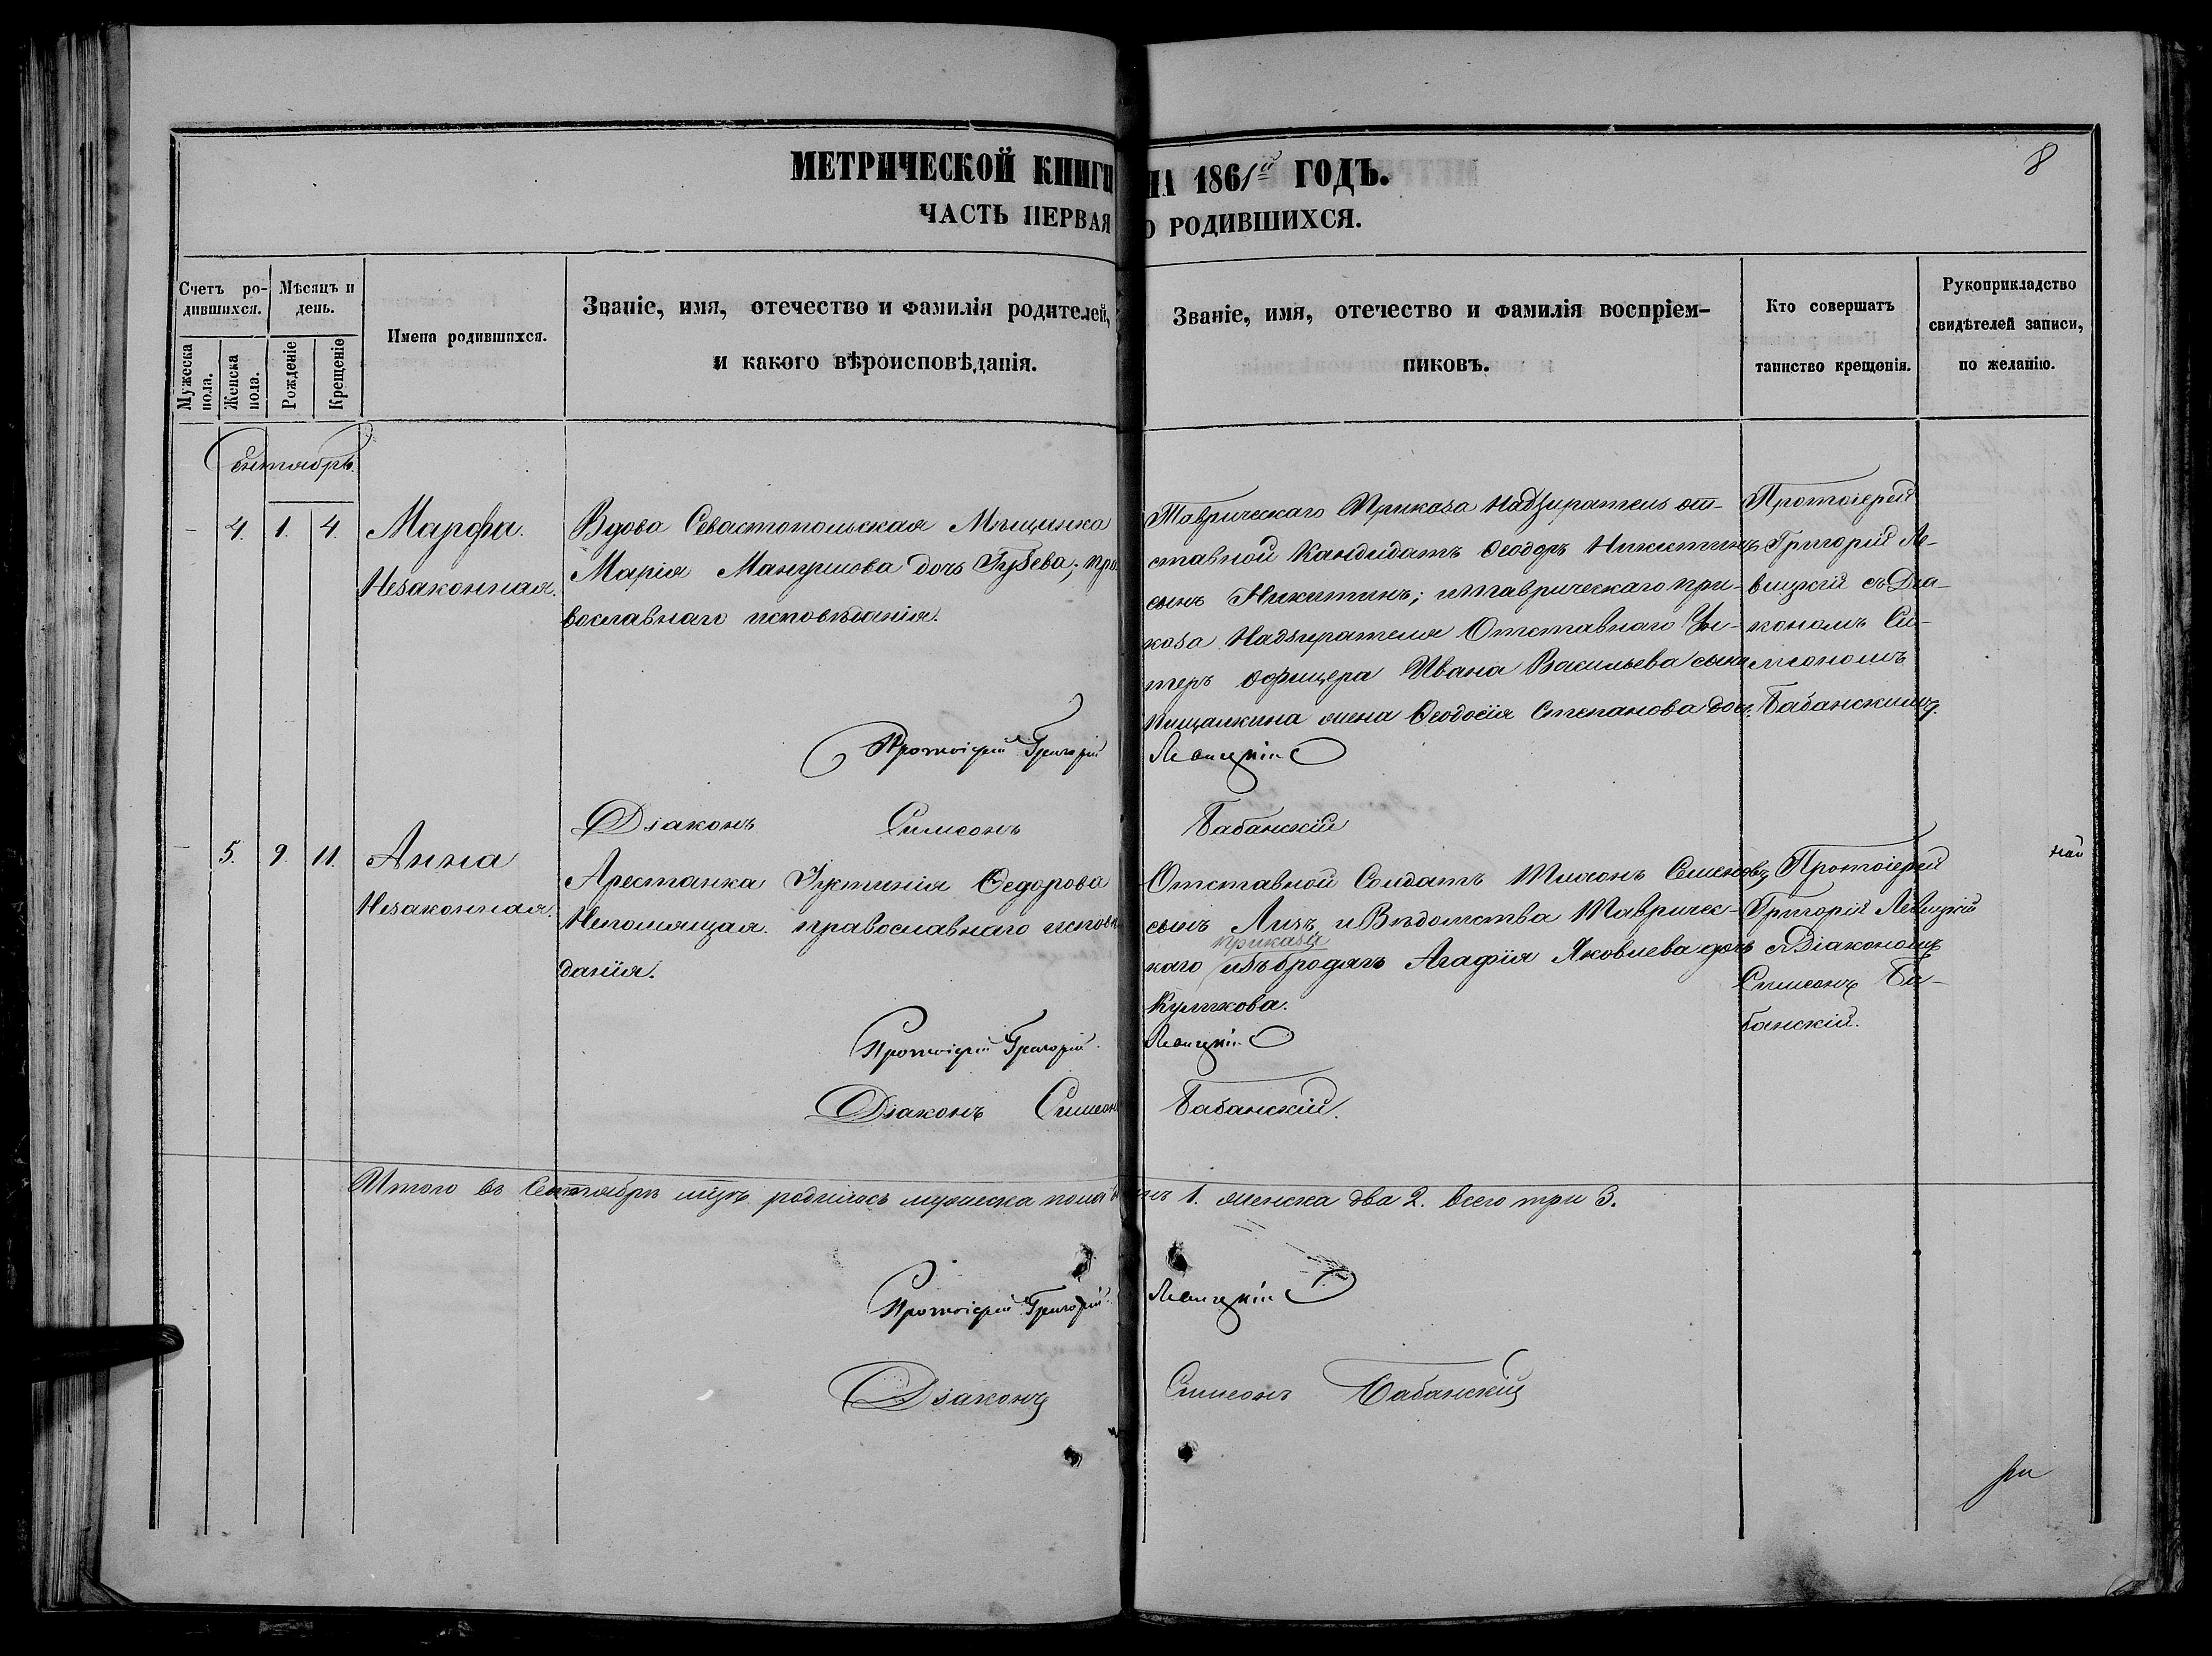 МЕТРИЧЕСКОЙ КНИГИ НА 1861й ГОДЪ.
8
ЧАСТЬ ПЕРВАЯ О РОДИВШИХСЯ.
Счетъ ро-
дившихся.
Мужеска пола.
Женска пола.
Мѣсяцъ и
день.
Рожденіе
Крещеніе
Имена родившихся.
Званіе, имя, отечество и фамилія родителей,
и какого вѣроисповѣданія.
Званіе, имя, отечество и фамилія воспріем-
никовъ.
Кто совершатъ
таинство крещенія.
Рукоприкладство
свидѣтелей записи,
по желанію.
Сентябрь.
- 4. 1. 4.
Марфа.
Незаконная.
Вдова Севастопольская Мѣщанка
Марія Мануилова дочь Гузева; пра
вославнаго исповѣданія.
Таврическаго Приказа Надзиратель от-
ставной Кандидатъ Ѳеодоръ Никитинъ
сынъ Никитинъ; и таврическаго при-
каза Надзирателя Отставнаго Ун-
теръ офицера Ивана Васильева сына
Пищалкина жена Ѳеодосія Степанова доч.
Протоіерей
Григорій Ле-
вицкій съ Діа-
кономъ Си-
меономъ
Бабанскимъ.
Протоіерей Григорій Левицкій
Діаконъ Симеонъ Бабанскій
- 5. 9. 11.
Анна
Незаконная.
Арестанка Іустинія Ѳедорова
Непомнящая православнаго исповѣ
данія.
Отставной Солдатъ Семеновъ
сынъ и Вѣдомства Тавричес-
приказа
каго Агафія Яковлева дочь
Куликова.
Протоіерей
Григорій Левицкій
съ Діакономъ
Симеонъ Ба-
банскій.
Протоіерей Григорій Левицкій
Діаконъ Симеонъ Бабанскій.
Итого въ Сентябрѣ м͠цѣ родилось мужеска пола одинъ 1. женска два 2. всего три 3.
Протоіерей Григорій Левицкій
Діаконъ Симеонъ Бабанскій